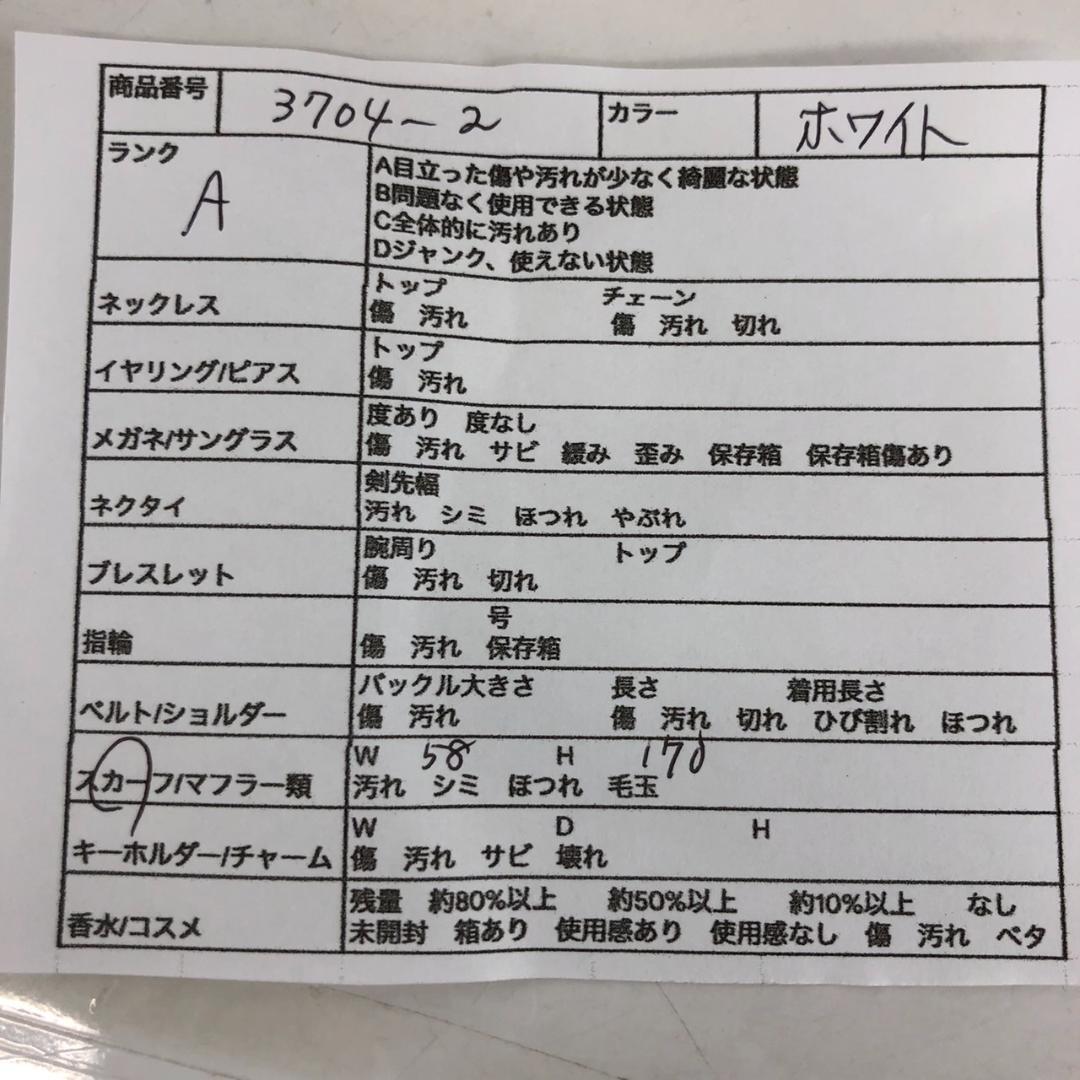 商品番号 3704-2 カラー ホワイト
ランク A
A目立った傷や汚れが少なく綺麗な状態
B問題なく使用できる状態
C全体的に汚れあり
Dジャンク、使えない状態
ネックレス
トップ チェーン
傷 汚れ 傷 汚れ 切れ
イヤリング/ピアス
トップ
傷 汚れ
メガネ/サングラス
度あり 度なし
傷 汚れ サビ 緩み 歪み 保存箱 保存箱傷あり
ネクタイ
剣先幅
汚れ シミ ほつれ やぶれ
ブレスレット
腕周り トップ
傷 汚れ 切れ
指輪
号
傷 汚れ 保存箱
ベルト/ショルダー
バックル大きさ 長さ 着用長さ
傷 汚れ 傷 汚れ 切れ ひび割れ ほつれ
スカーフ/マフラー類
W 58 H 170
汚れ シミ ほつれ 毛玉
キーホルダー/チャーム
W D H
傷 汚れ サビ 壊れ
香水/コスメ
残量 約80%以上 約50%以上 約10%以上 なし
未開封 箱あり 使用感あり 使用感なし 傷 汚れ ベタ